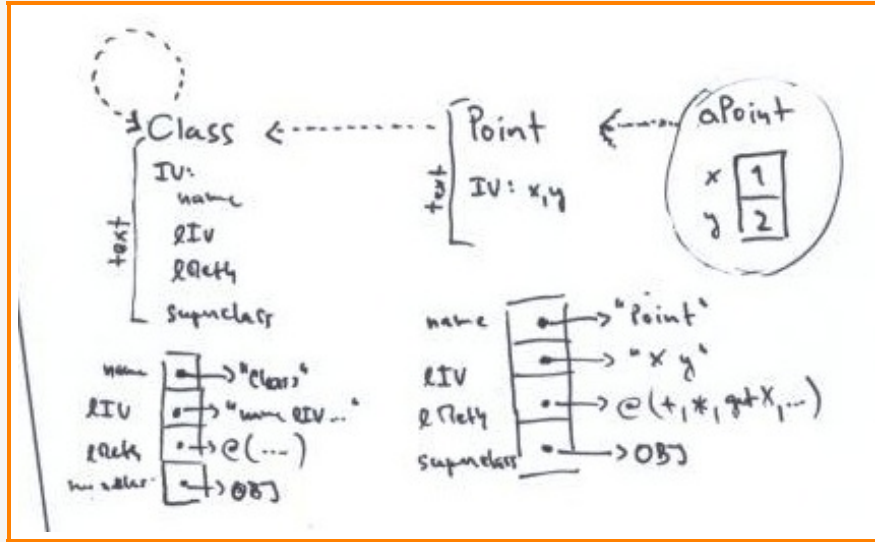 Class
text
IV:
name
lIV
lMeth
superclass
Point
text
IV: x,y
aPoint
x 1
y 2
name "Class"
lIV "name lIV..."
lMeth @(...)
superclass OBJ
name "Point"
lIV "x y"
lMeth @(+,*,getX,...)
superclass OBJ